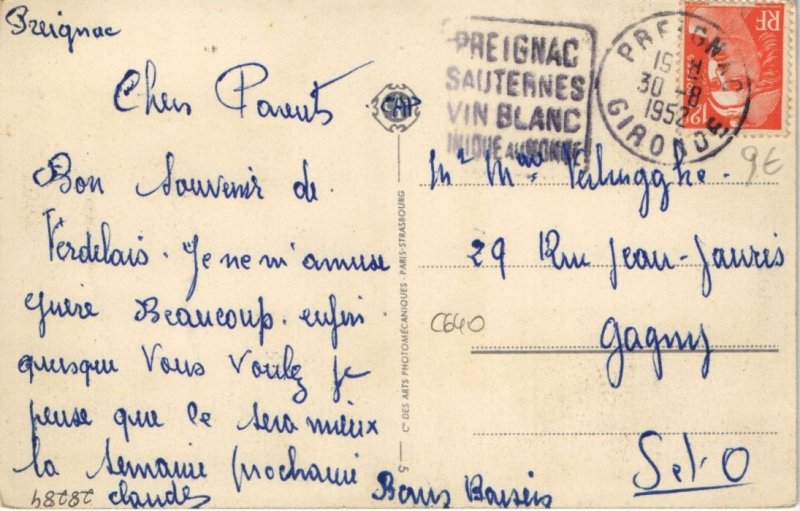 Preignac
Chers Parents
Bon souvenir de
Verdelais. Je ne m'amuse
guère Beaucoup. enfin
puisque Vous Voulez je
pense que ce sera mieux
la semaine prochaine
Claude
Bons Baisers
28784
CAP
Cie DES ARTS PHOTOMÉCANIQUES - PARIS-STRASBOURG
PREIGNAC
SAUTERNES
VIN BLANC
UNIQUE AU MONDE
PREIGNAC
15H
30-8
1952
GIRONDE
RF
12F
9€
Mr Mme
29 Rue Jean-Jaurès
C640
Gagny
S et O